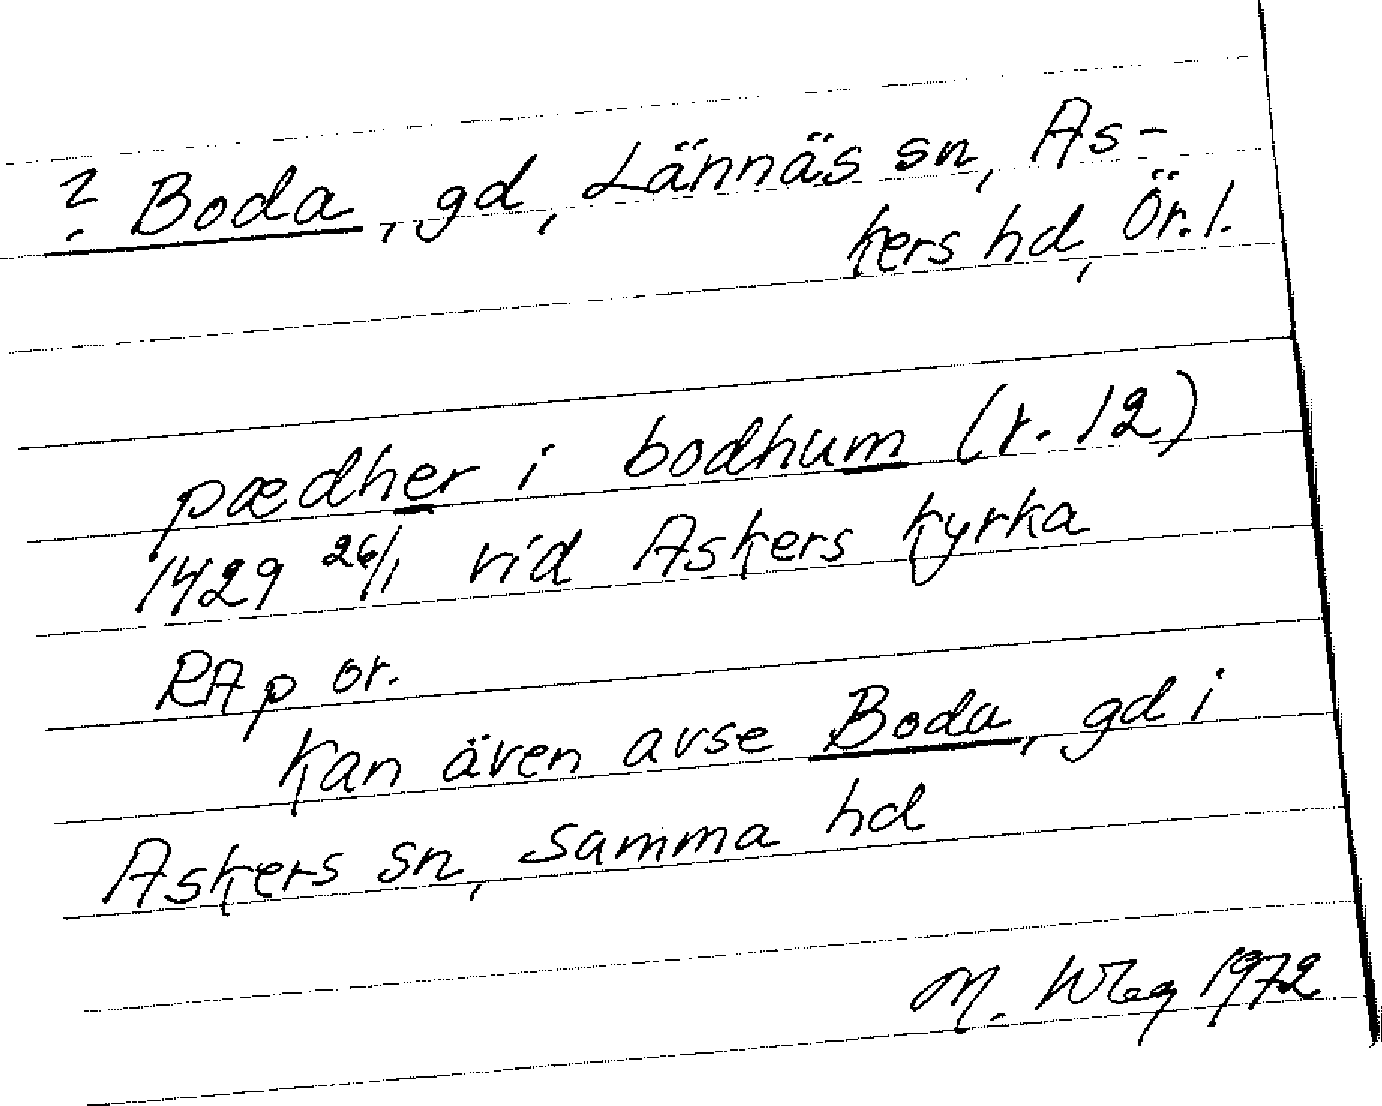 ? Boda, gd, Lännäs sn, As-
kers hd, Ör. l.
pædher i bodhum (r. 12)
1429 26/1 vid Askers kyrka
RAp or.
Kan även avse Boda, gd i
Askers sn, samma hd
M. 1972